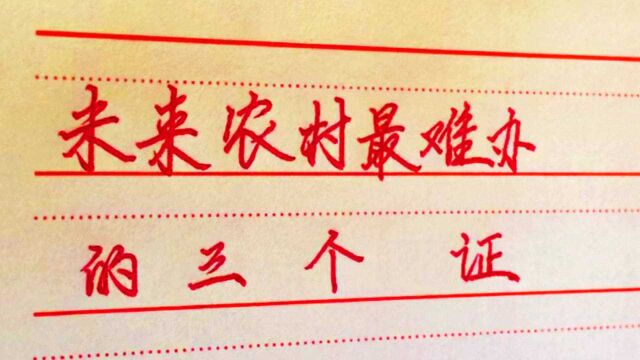 未来农村最难办
的三个证